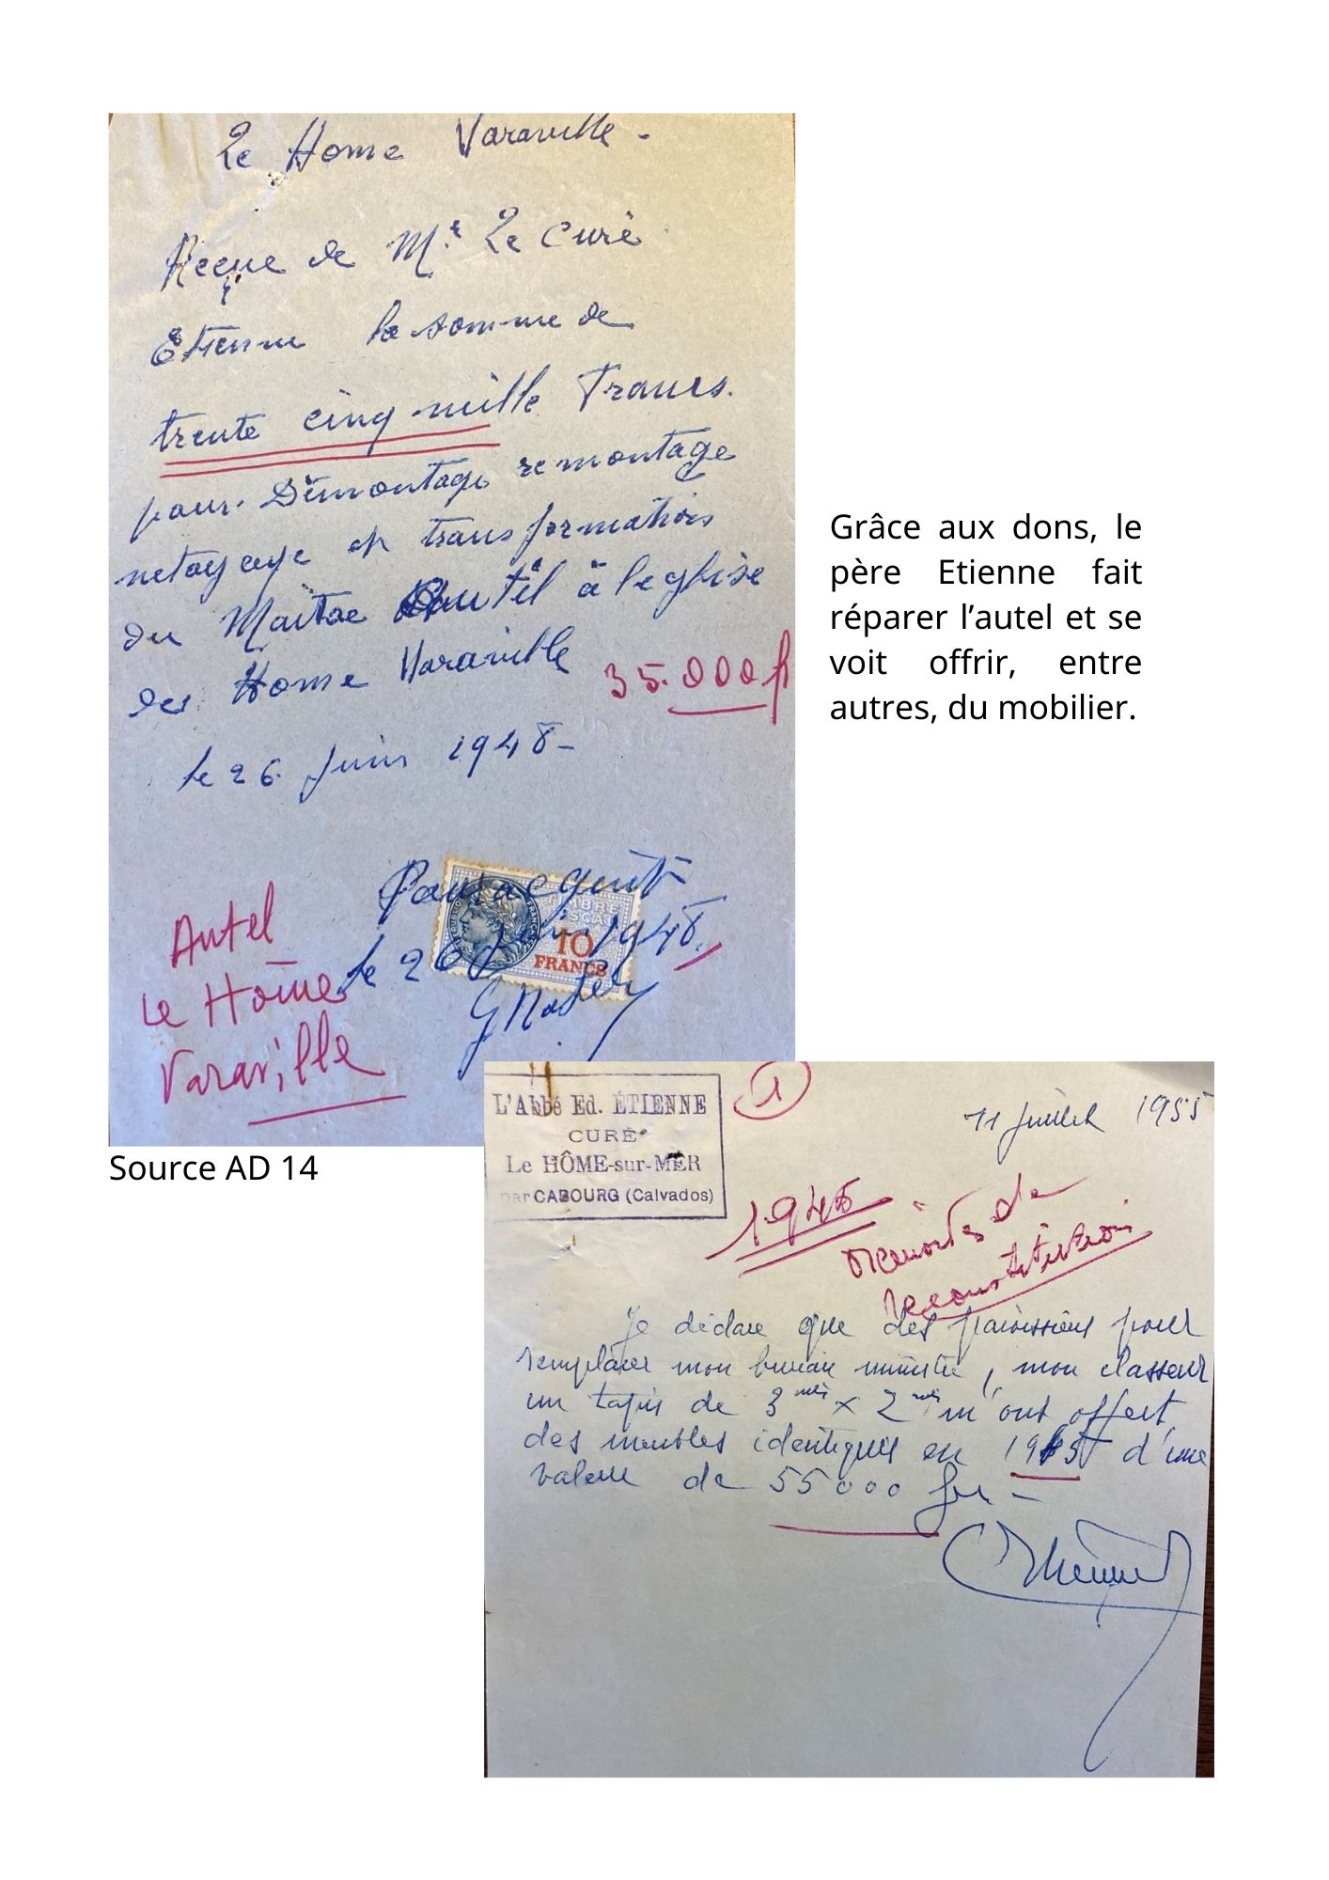 Le Home Varaville -
Reçue de Mr Le Curé
Etienne la somme de
trente cinq mille Francs.
pour Démontage remontage
netoyage et transformations
du Maitre Autel à leglise
des Home Varaville
35.000 f
le 26 Juin 1948-
Pour acquit
le 26 Juin 1948.
TIMBRE
FISCAL
10
FRANCS
Autel
Le Hôme
Varaville
Source AD 14
Grâce aux dons, le
père Etienne fait
réparer l’autel et se
voit offrir, entre
autres, du mobilier.
L'Abbé Ed. ÉTIENNE
CURÉ
Le HÔME-sur-MER
par CABOURG (Calvados)
1
11 Juillet 1955
1945
de
reconstitution
Je déclare que des paroissiens pour
remplacer mon bureau ministre, mon classeur
un tapis de 3 mes x 2 mes m'ont offert
des meubles identiques en 1945 d'une
valeur de 55000 frs -